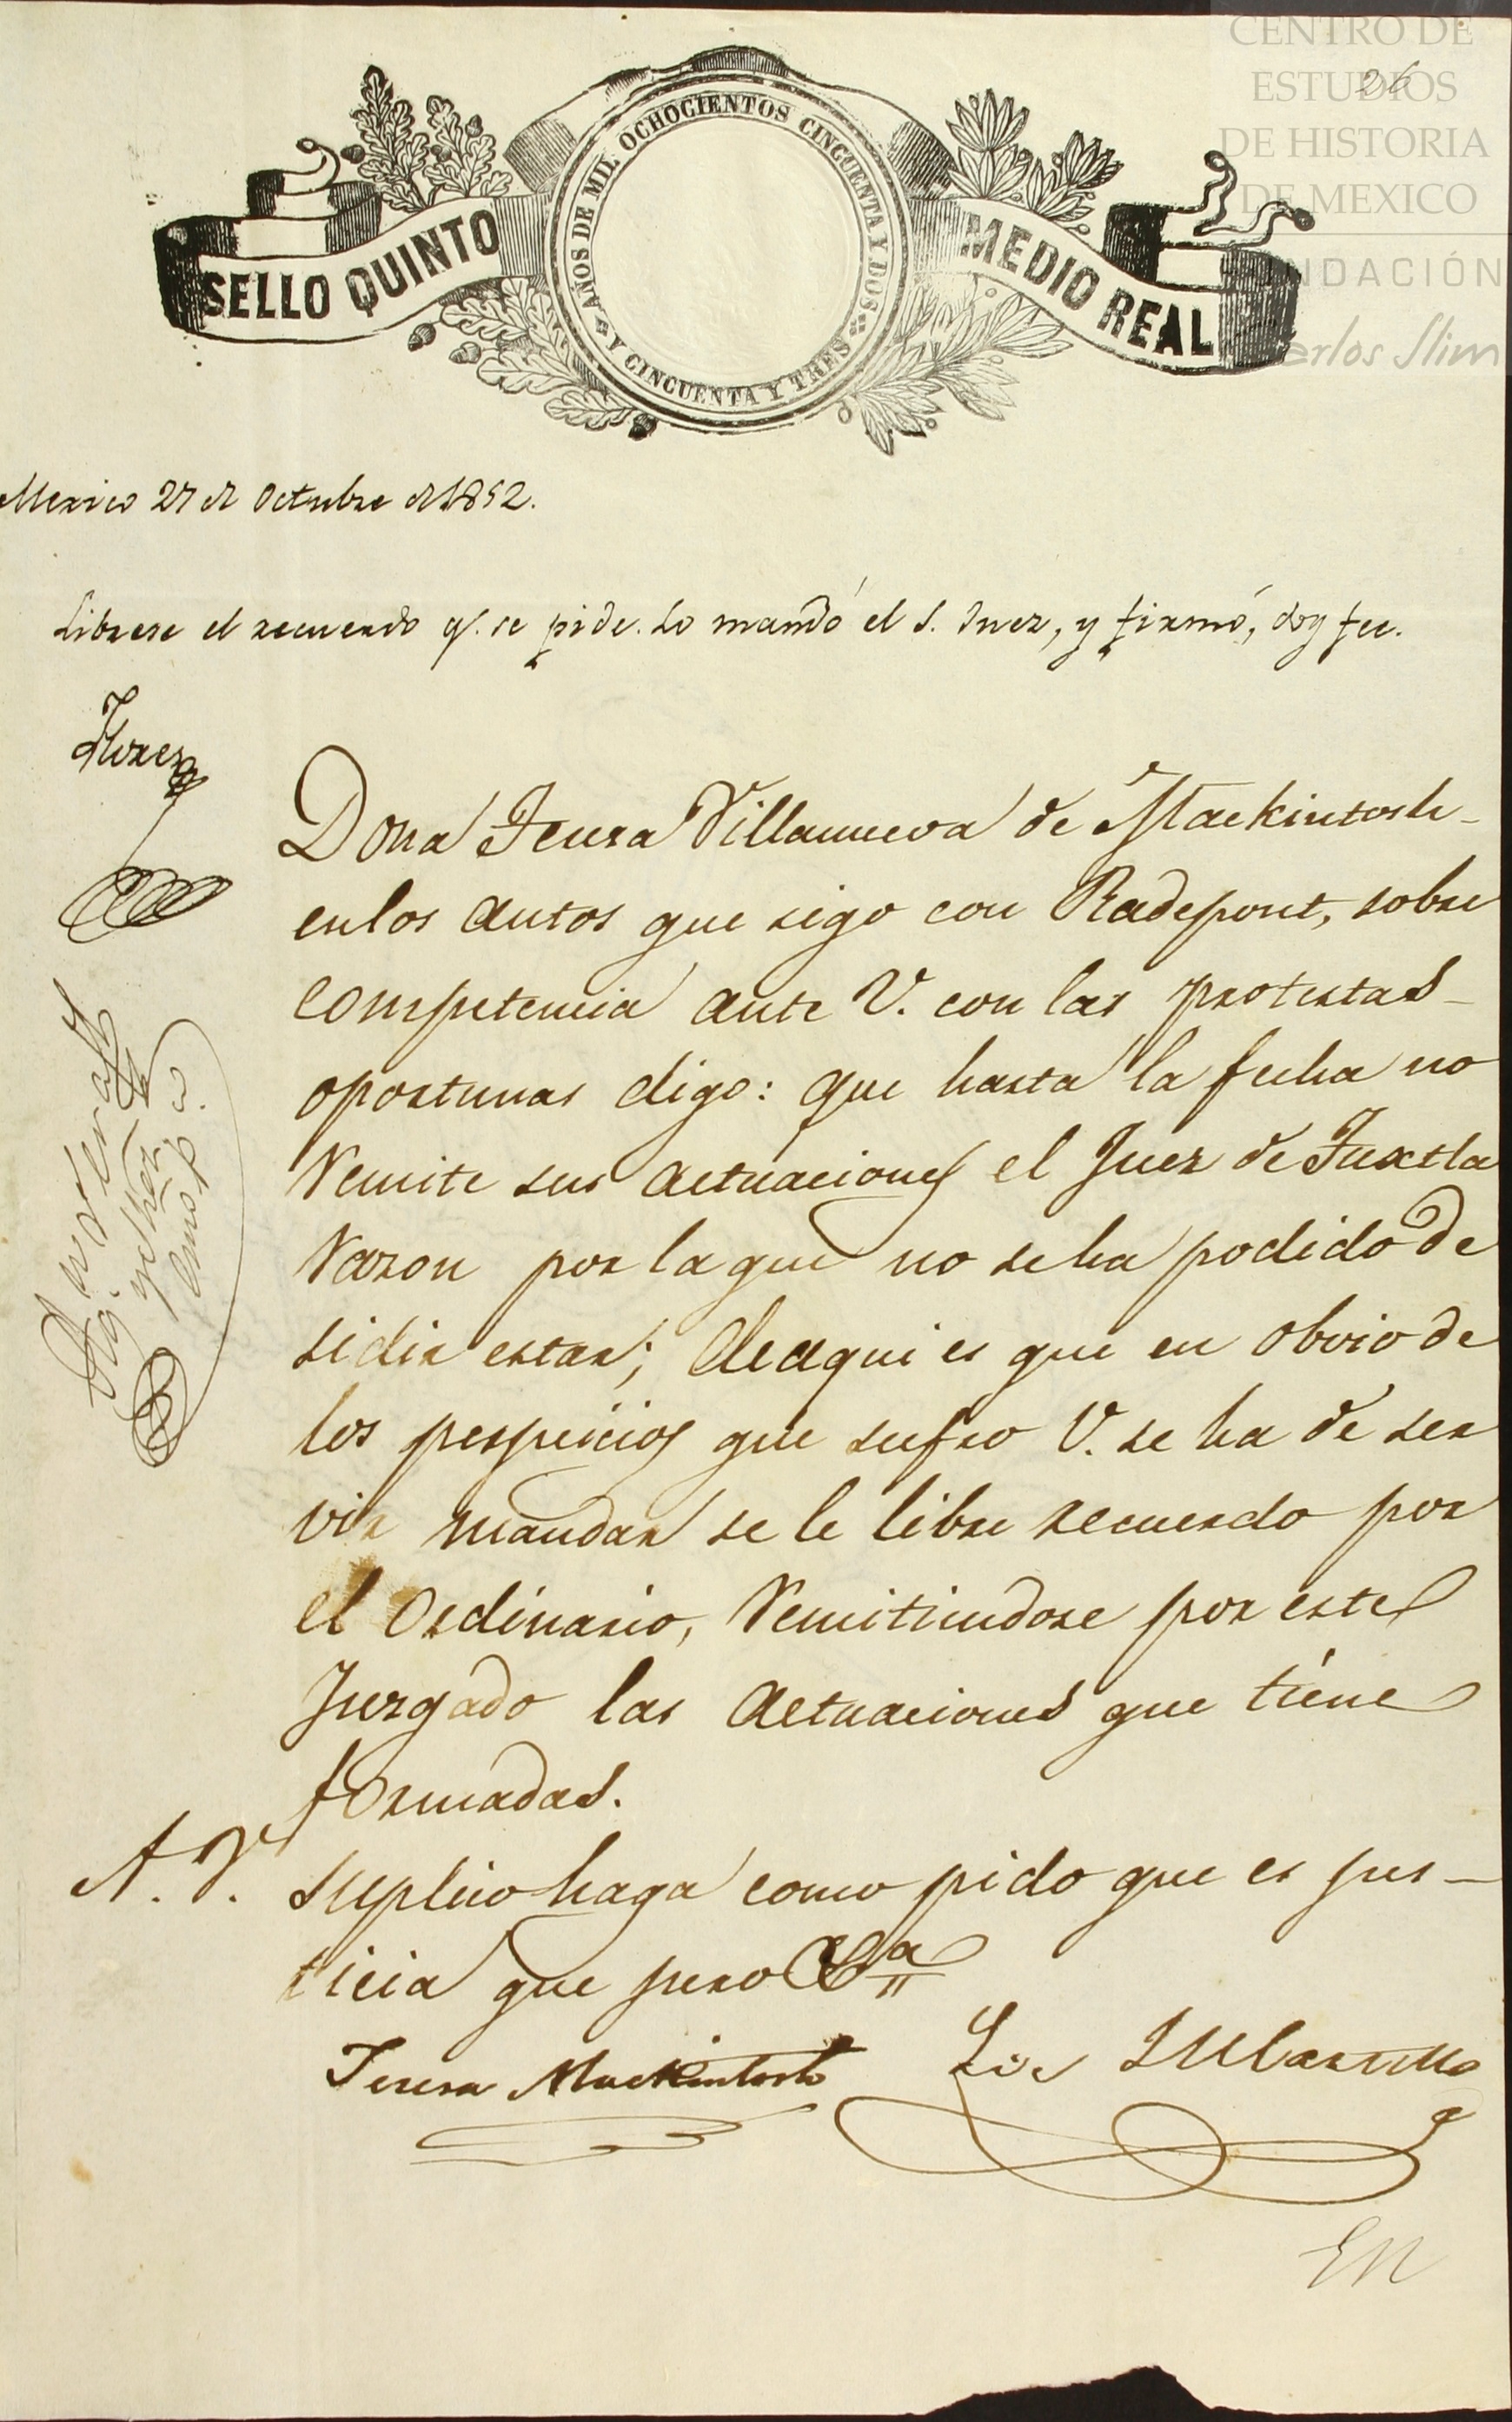 CENTRO DE
ESTUDIOS
DE HISTORIA
DE MEXICO
FUNDACIÓN
Carlos Slim
26
SELLO QUINTO
AÑOS DE MIL OCHOCIENTOS CINCUENTA Y DOS
Y CINCUENTA Y TRES
MEDIO REAL
Mexico 27 de Octubre de 1852.
Librese el recuerdo q. se pide. Lo mandó el S. Juez, y firmó, doy fee.
Florez
Dona Teresa Villanueva de Mackintosh
en los autos que sigo con Radepont, sobre
competencia ante V. con las protestas
oportunas digo: que hasta la fecha no
Remite sus actuaciones el Juez de Tuxtla
Razon por la que no se ha podido de
sidir estar; de aqui es que en obvio de
los perjuicios que sufro V. se ha de ser
vir mandar se le libre recuerdo por
el Ordinario, Remitiendose por este
Juzgado las actuaciones que tiene
formadas.
A. V. Suplico haga como pido que es jus-
ticia que juro &a
Teresa Mackintosh
Lic
EM